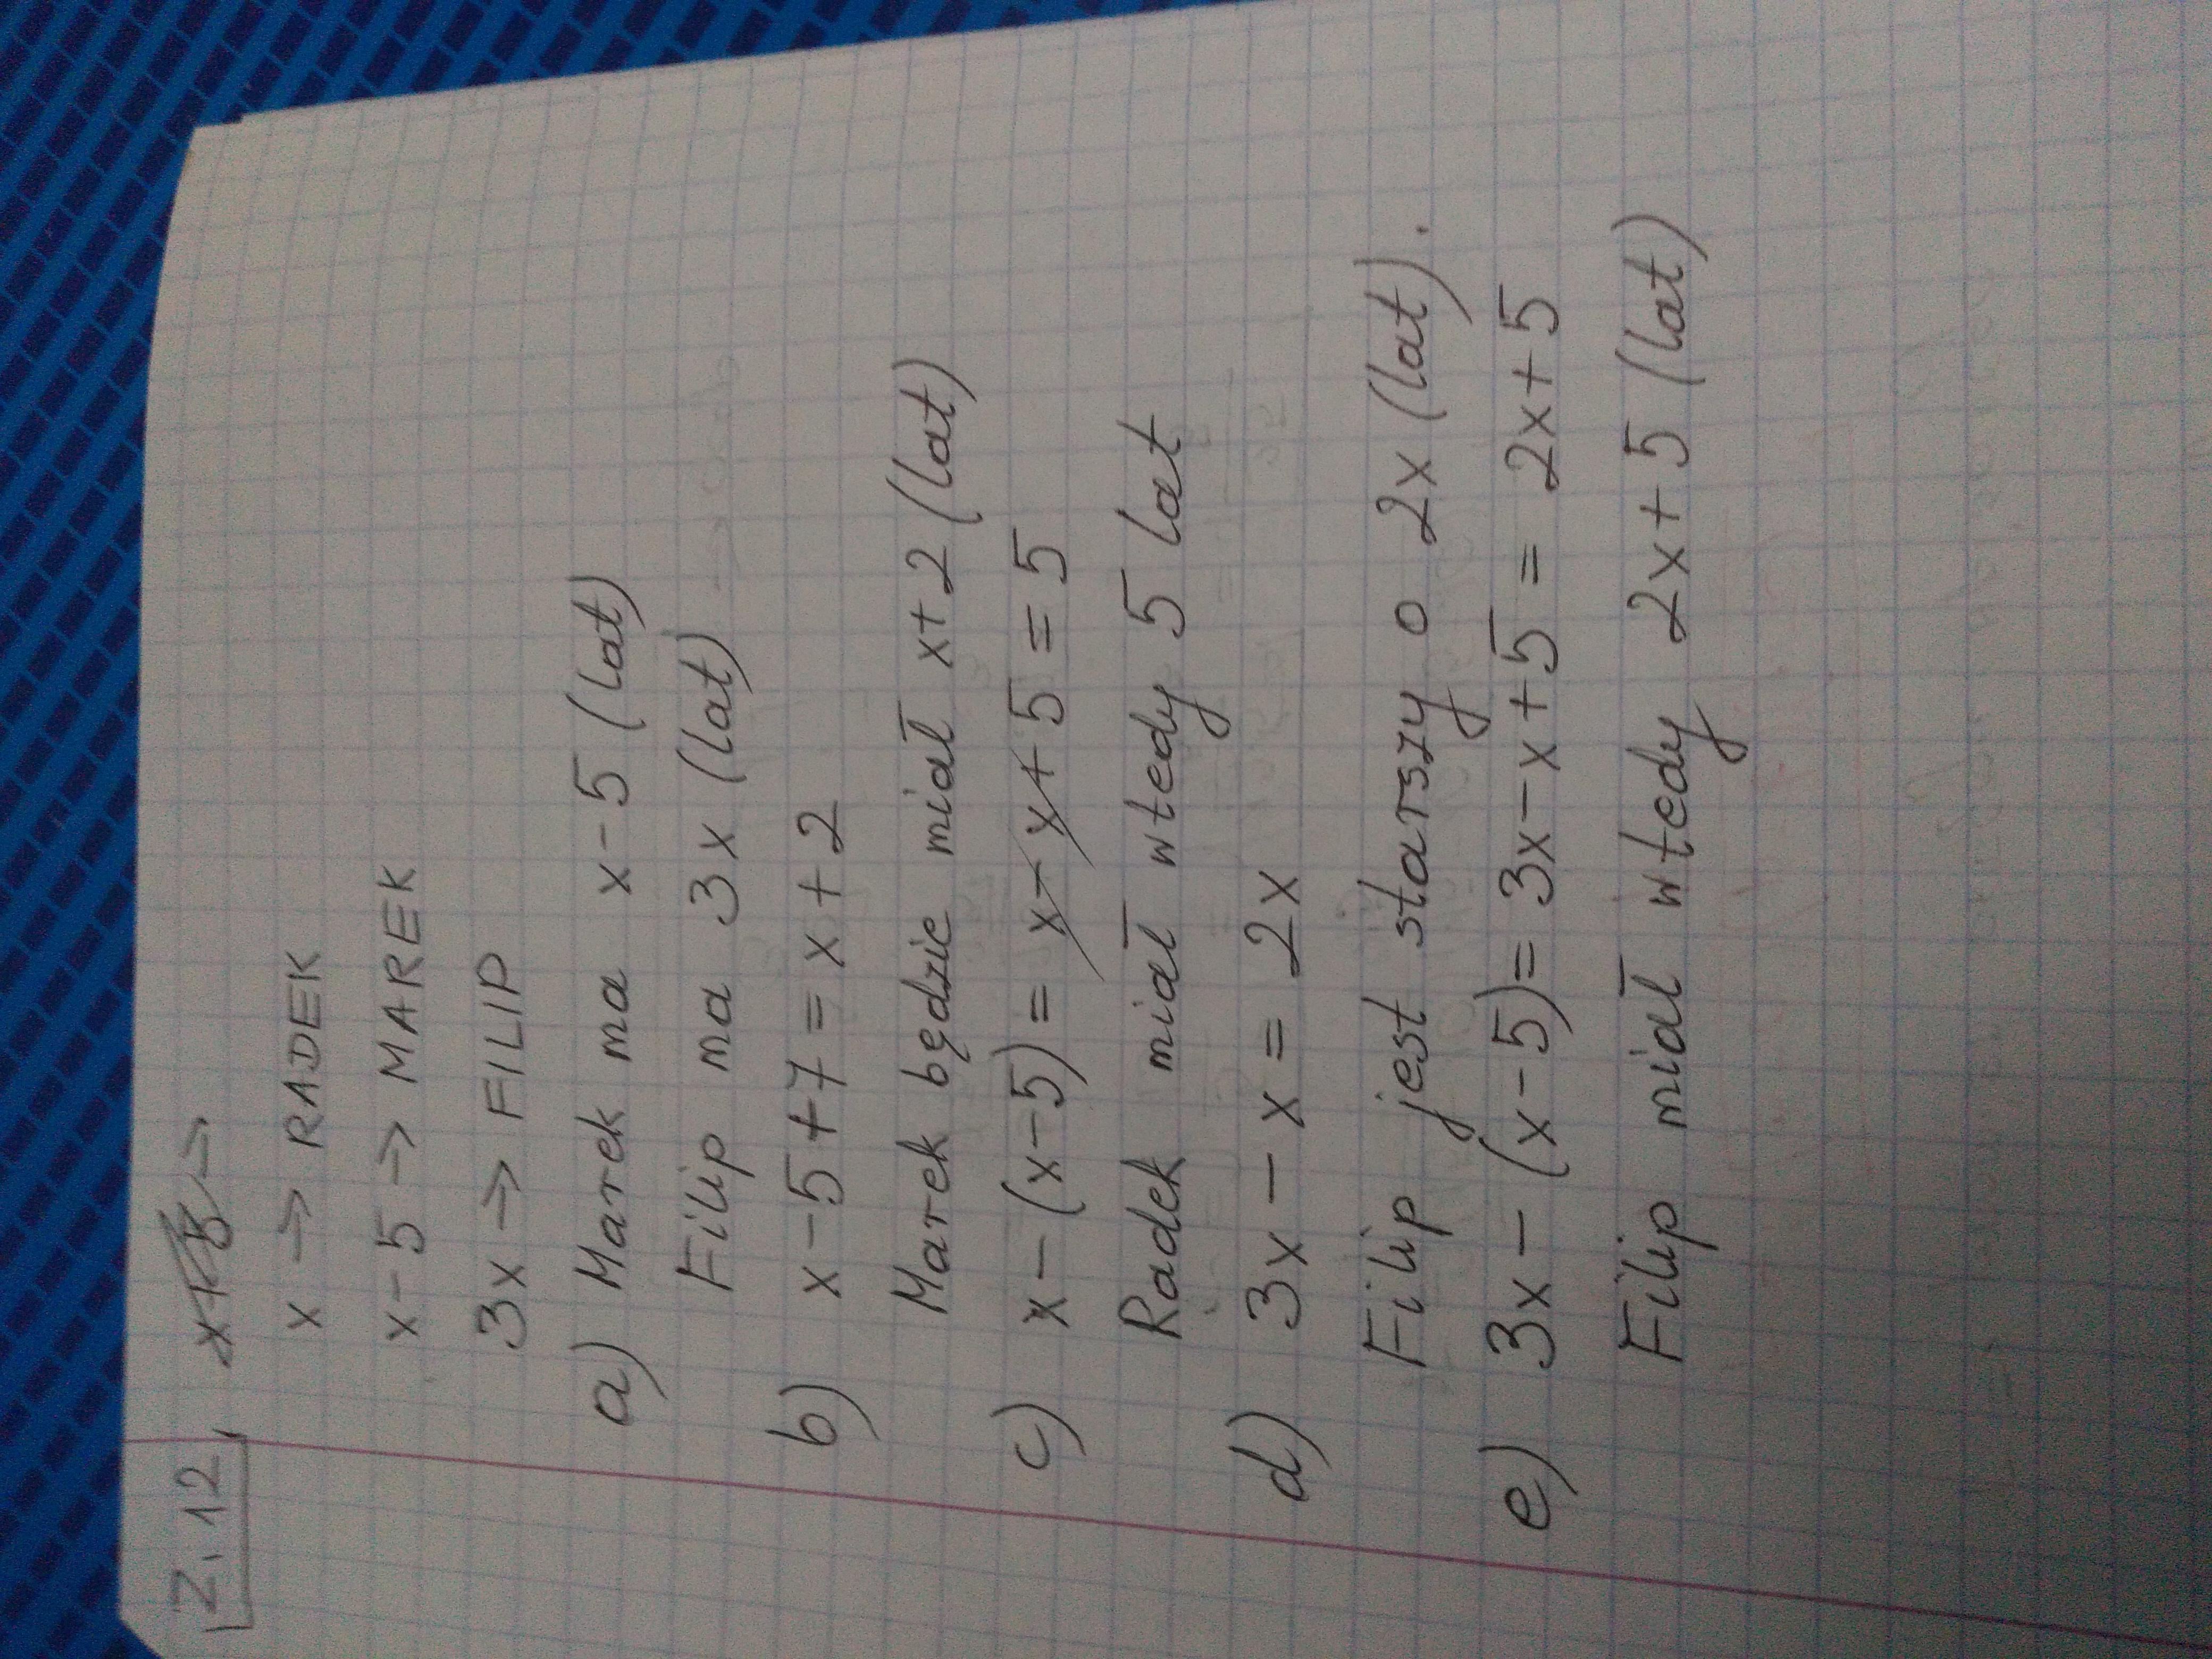 Z. 12, x+5 →
x → RADEK
x-5 → MAREK
3x → FILIP
a) Marek ma x-5 (lat)
Filip ma 3x (lat)
b) x-5+7=x+2
Marek będzie miał x+2 (lat)
c) x-(x-5)=x-x+5=5
Radek miał wtedy 5 lat
d) 3x-x=2x
Filip jest starszy o 2x (lat).
e) 3x-(x-5)=3x-x+5=2x+5
Filip miał wtedy 2x+5 (lat)